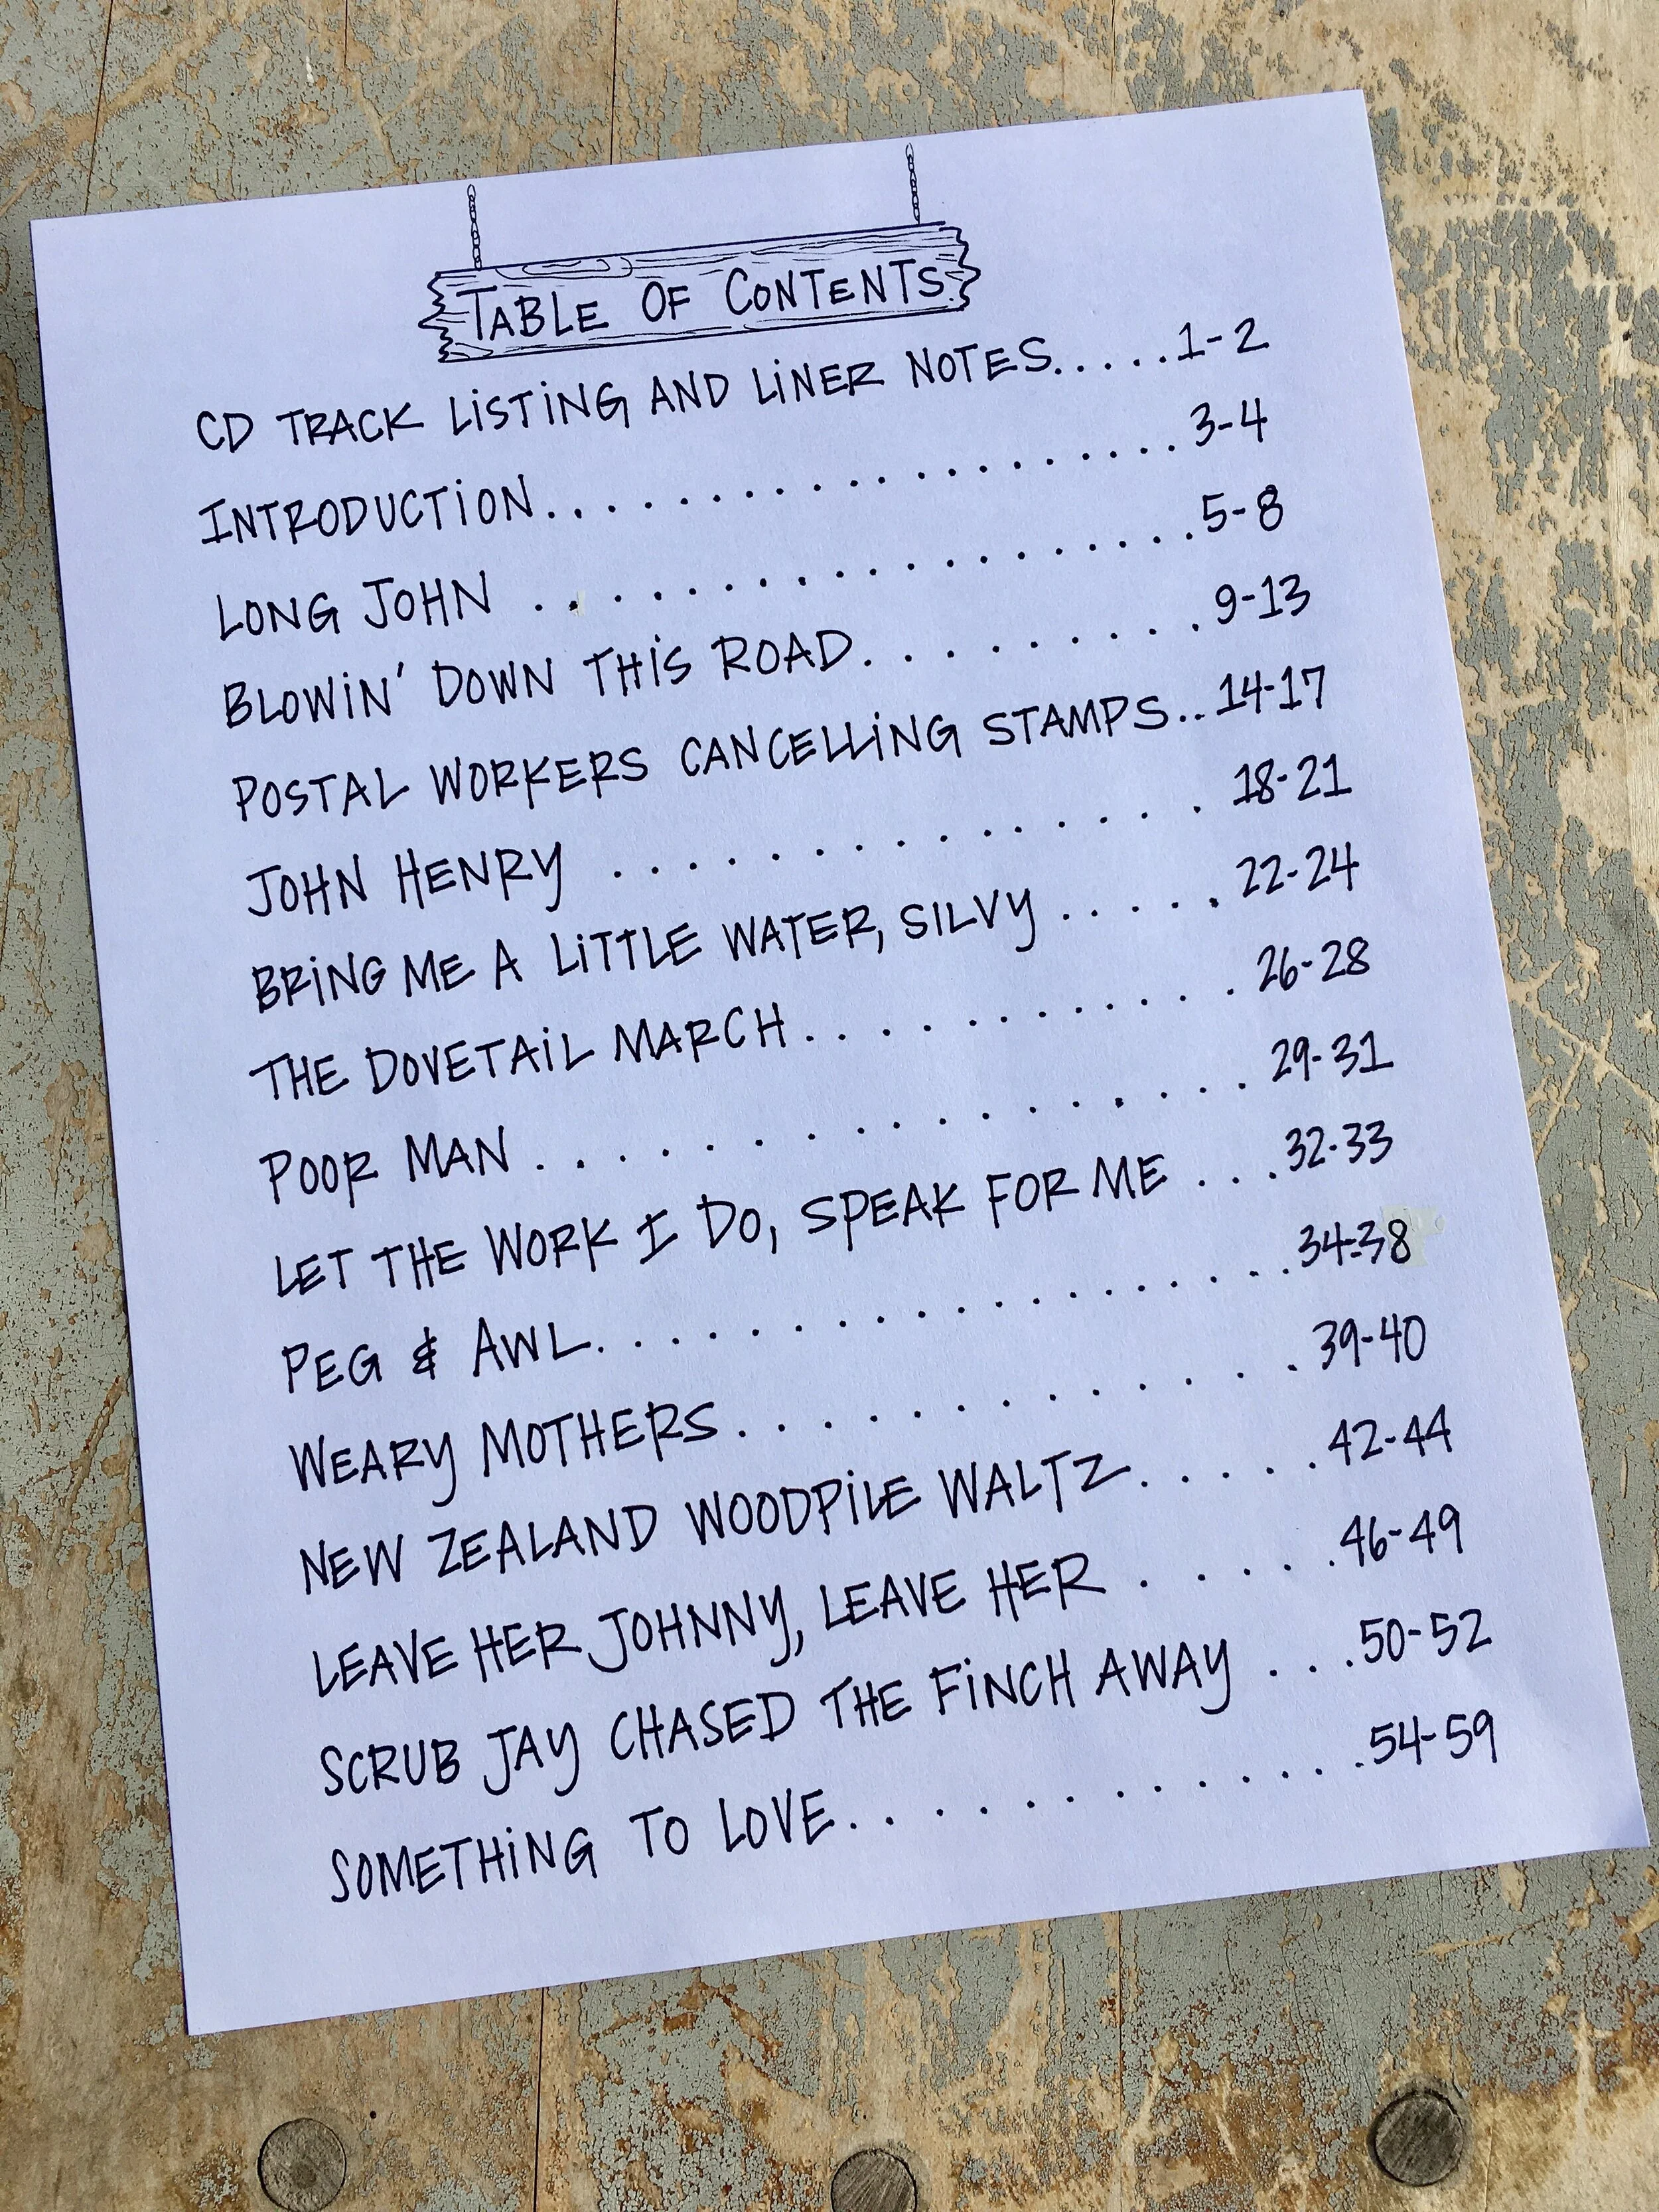 TABLE OF CONTENTS
CD TRACK LISTING AND LINER NOTES.....1-2
INTRODUCTION..................3-4
LONG JOHN ..................5-8
BLOWIN' DOWN THIS ROAD..........9-13
POSTAL WORKERS CANCELLING STAMPS..14-17
JOHN HENRY ..............18-21
BRING ME A LITTLE WATER, SILVY .....22-24
THE DOVETAIL MARCH...........26-28
POOR MAN ..............29-31
LET THE WORK I DO, SPEAK FOR ME ...32-33
PEG & AWL.................34-38
WEARY MOTHERS.............39-40
NEW ZEALAND WOODPILE WALTZ.....42-44
LEAVE HER JOHNNY, LEAVE HER .....46-49
SCRUB JAY CHASED THE FINCH AWAY ...50-52
SOMETHING TO LOVE.............54-59